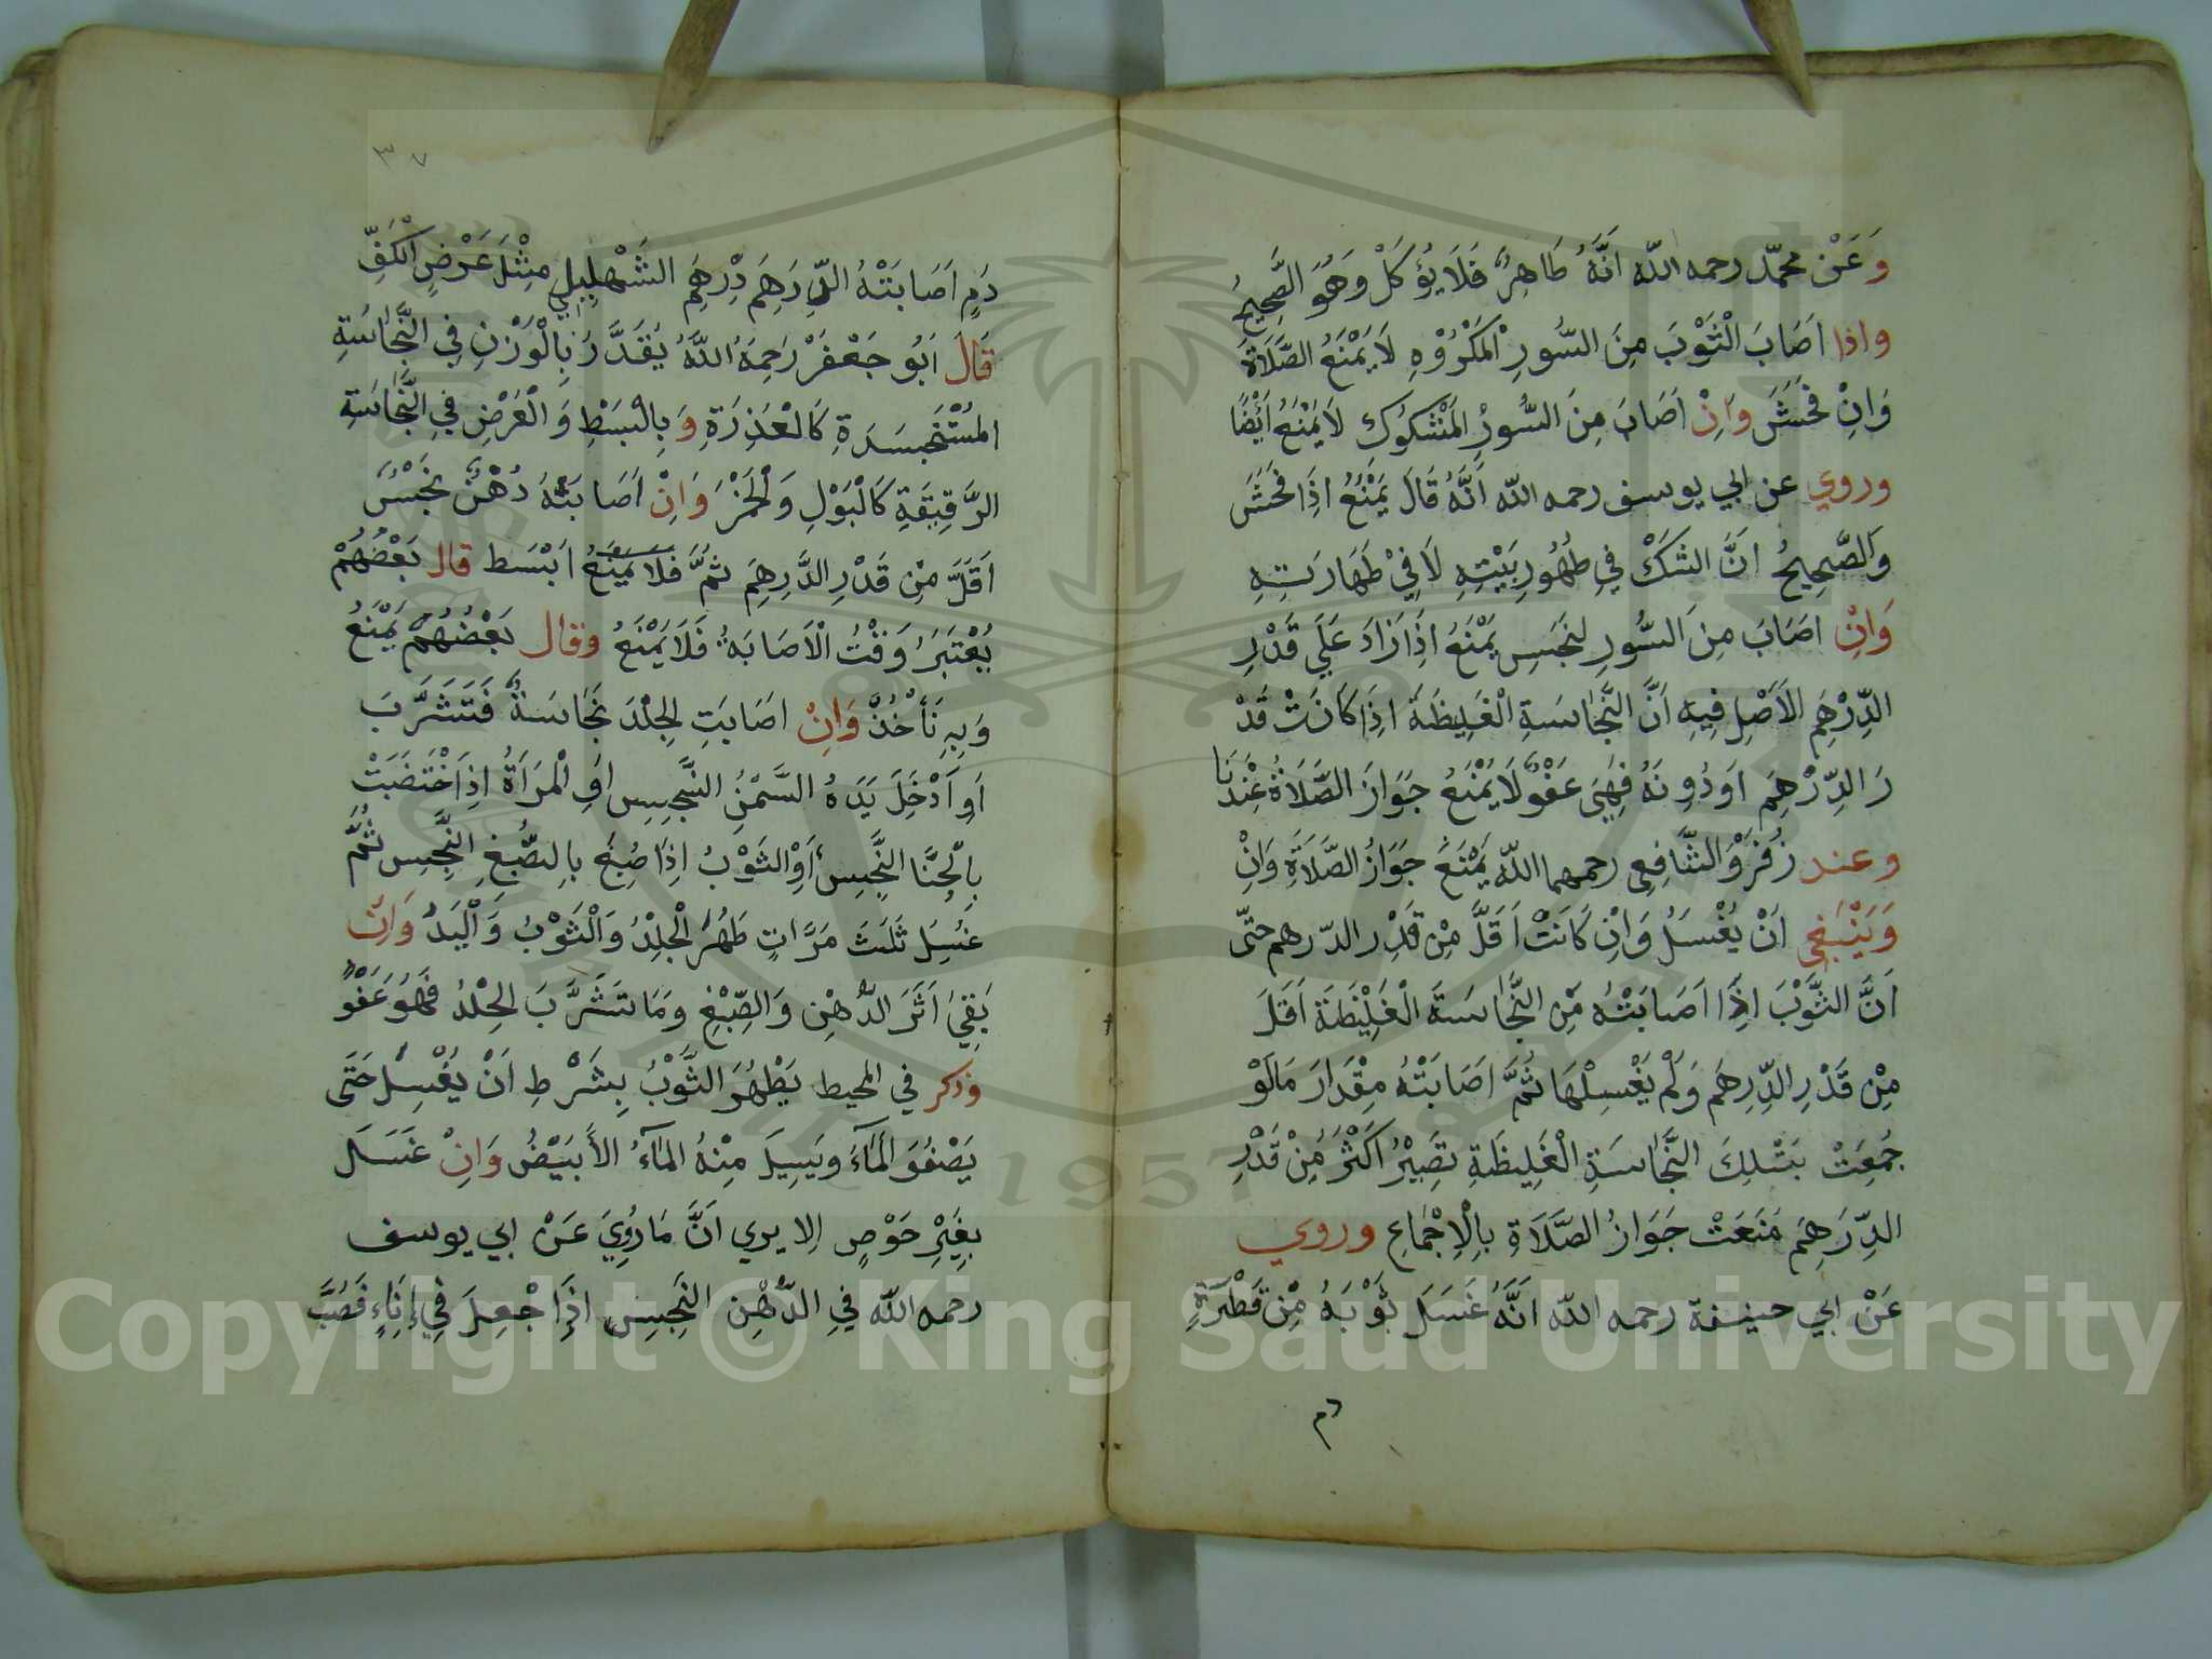 وَعَنْ محمّد رحمه الله اَنَّهُ طَاهِرٌ فَلَا يُؤكَلْ وَهُوَ الصَّحِيحُ
واذا اَصَابَ الْثَوْبَ مِنَ السُّورِ الْمَكْرُوْهِ لَا يَمْنَعُ الصَّلَاةَ
وَاِنْ فَحَشَ وَاِنْ اَصَابَ مِنَ السُّورِ الْمَشْكُوْكِ لَا يَمْنَعُ اَيْضًا
وروي عن ابي يوسف رحمه الله اَنَّهُ قَالَ يَمْنَعُ اِذَا فَحَشَ
وَالصَّحِيحُ اَنَّ الشَكَّ فِي طُهُورِيَّتِهِ لَا فِيْ طَهَارَتِهِ
وَاِنْ اصَابَ مِنَ السُّورِ لنجَسِ يَمْنَعُ اِذَا زَادَ عَلَي قَدْرِ
الدِّرْهَمِ الاَصْلِ فِيهِ اَنَّ النَّجَاسَةِ الْغَلِيظَةَ اِذَا كَانَتْ قَدْ
رَ الدِّرْهَمِ اَودُونَهُ فَهِيَ عَفْوٌ لَا يَمْنَعُ جَوَازَ الصَّلَاةُ عِنْدَنَا
وعند زُفَرْ وَالشَّافِعِي رحمهما اللّه يَمْنَعُ جَوَازُ الصَّلَاةِ وَاِنْ
وَيَنْبَغِي اَنْ يُغْسَلُ وَاِنْ كَانَتْ اَقَلَّ مِنْ قَدْرِ الدّرهم حتّى
اَنَّ الثَّوْبَ اِذَا اَصَابَتْهُ مِن النَّجَاسَةَ الْغَلِيْظَةَ اَقَلَ
مِنْ قَدْرِ الدِّرِهَمِ وَلَمْ يَغْسِلْهَا ثُمَّ اَصَابَتْهُ مِقْدَارَ مَالَوْ
جُمِعَتْ بَتْلِكَ النَّجَاسَةِ الْغَلِيظَةِ تَصِيْرُ اَكْثَرُ مِنْ قَدْرِ
الدِّرَهِمَ مَنَعَتْ جَوَازُ الصَّلَاةِ بِالْاِجْمَاعِ وروي
عَنْ ابي حنيفة رحمه اللّه اَنَّهُ غَسَلَ ثَوْبَهُ مِنْ قَطْرَةٍ
دم
٣٧
دَمٍ اَصَابَتْهُ الدِّرَهِمَ دِرْهَمِ الشَهْلِيلِي مِثْلَ عَرْضِ الْكَفِّ
قَالَ اَبُو جَعْفَرْ رَحِمَهُ اللَّهُ يُقَدَّرُ بِالْوَزْنِ فِي النَّجَاسَةِ
المُسْتَجْسَدَةِ كَالْعَذِرَةِ وَبِالْبَسْطِ وَالْعَرْضِ فِي النَّجَاسَةِ
الرَّقِيقَةِ كَالْبَوْلِ وَالْخَمْرْ وَاِنْ اَصَابَتْهُ دُهْنٌ نَجْسٌ
اَقَلَّ مِنْ قَدْرِ الدَّرِهَمِ ثُمَّ فلا يَمْنَعُ اَبْسَط قال بَعْضُهُمْ
يُعْتَبَرُ وَقْتُ الْاَصَابَةُ فَلَا يَمْنَعُ وقال بَعْضُهُمْ يَمْنَعُ
وَبِهِ نَأْخُذْ وَاِنْ اصَابَتِ لِجِلْدَ نَجَاسَةٌ فَتَشَرَّبَ
اَو اَدْخَلَ يَدَهُ السَّمْنُ النَّجِيسِ اوِ الْمَرَاَةُ اِذَا خْتَضَبَتْ
بِالْحِنَّا النَّجِسِ اَوْ الثَوْبُ اِذَا صُبِغَ بِالصُّبْغِ النَّجِسِ ثُمَّ
غَسَلَ ثَلَثَ مَرَّاتٍ طَهُرَ الْجِلْدُ وَالْثَوْبُ وَالْيَدُ وَاِنْ
بَقِيَ اَثَرَ الدُّهْنِ وَالصِّبْغِ وَمَا تَشَرَّبَ الجِلْدُ فَهُوَ عَفْوٌ
وذكر في المحيط يَطْهُرَ الثَّوْبُ بِشَرْطِ اَنْ يَغْسِلْ حَتَى
يَصْفُوَ الْمَاءُ ويَسِيلَ مِنْهُ المَآءُ الاَبْيَضُ وَاِنْ غَسَلَ
بِغَيْرِ حَوْصٍ اِلا يري اَنَّ مَا رُوِيَ عَنْ ابي يوسف
رحمه اللّه فِي الدُّهْنِ النَجِسِ اِذَا جْعِلَ فِي اِنَاءٍ فَصُبَّ
Copyright © King Saud University
1957